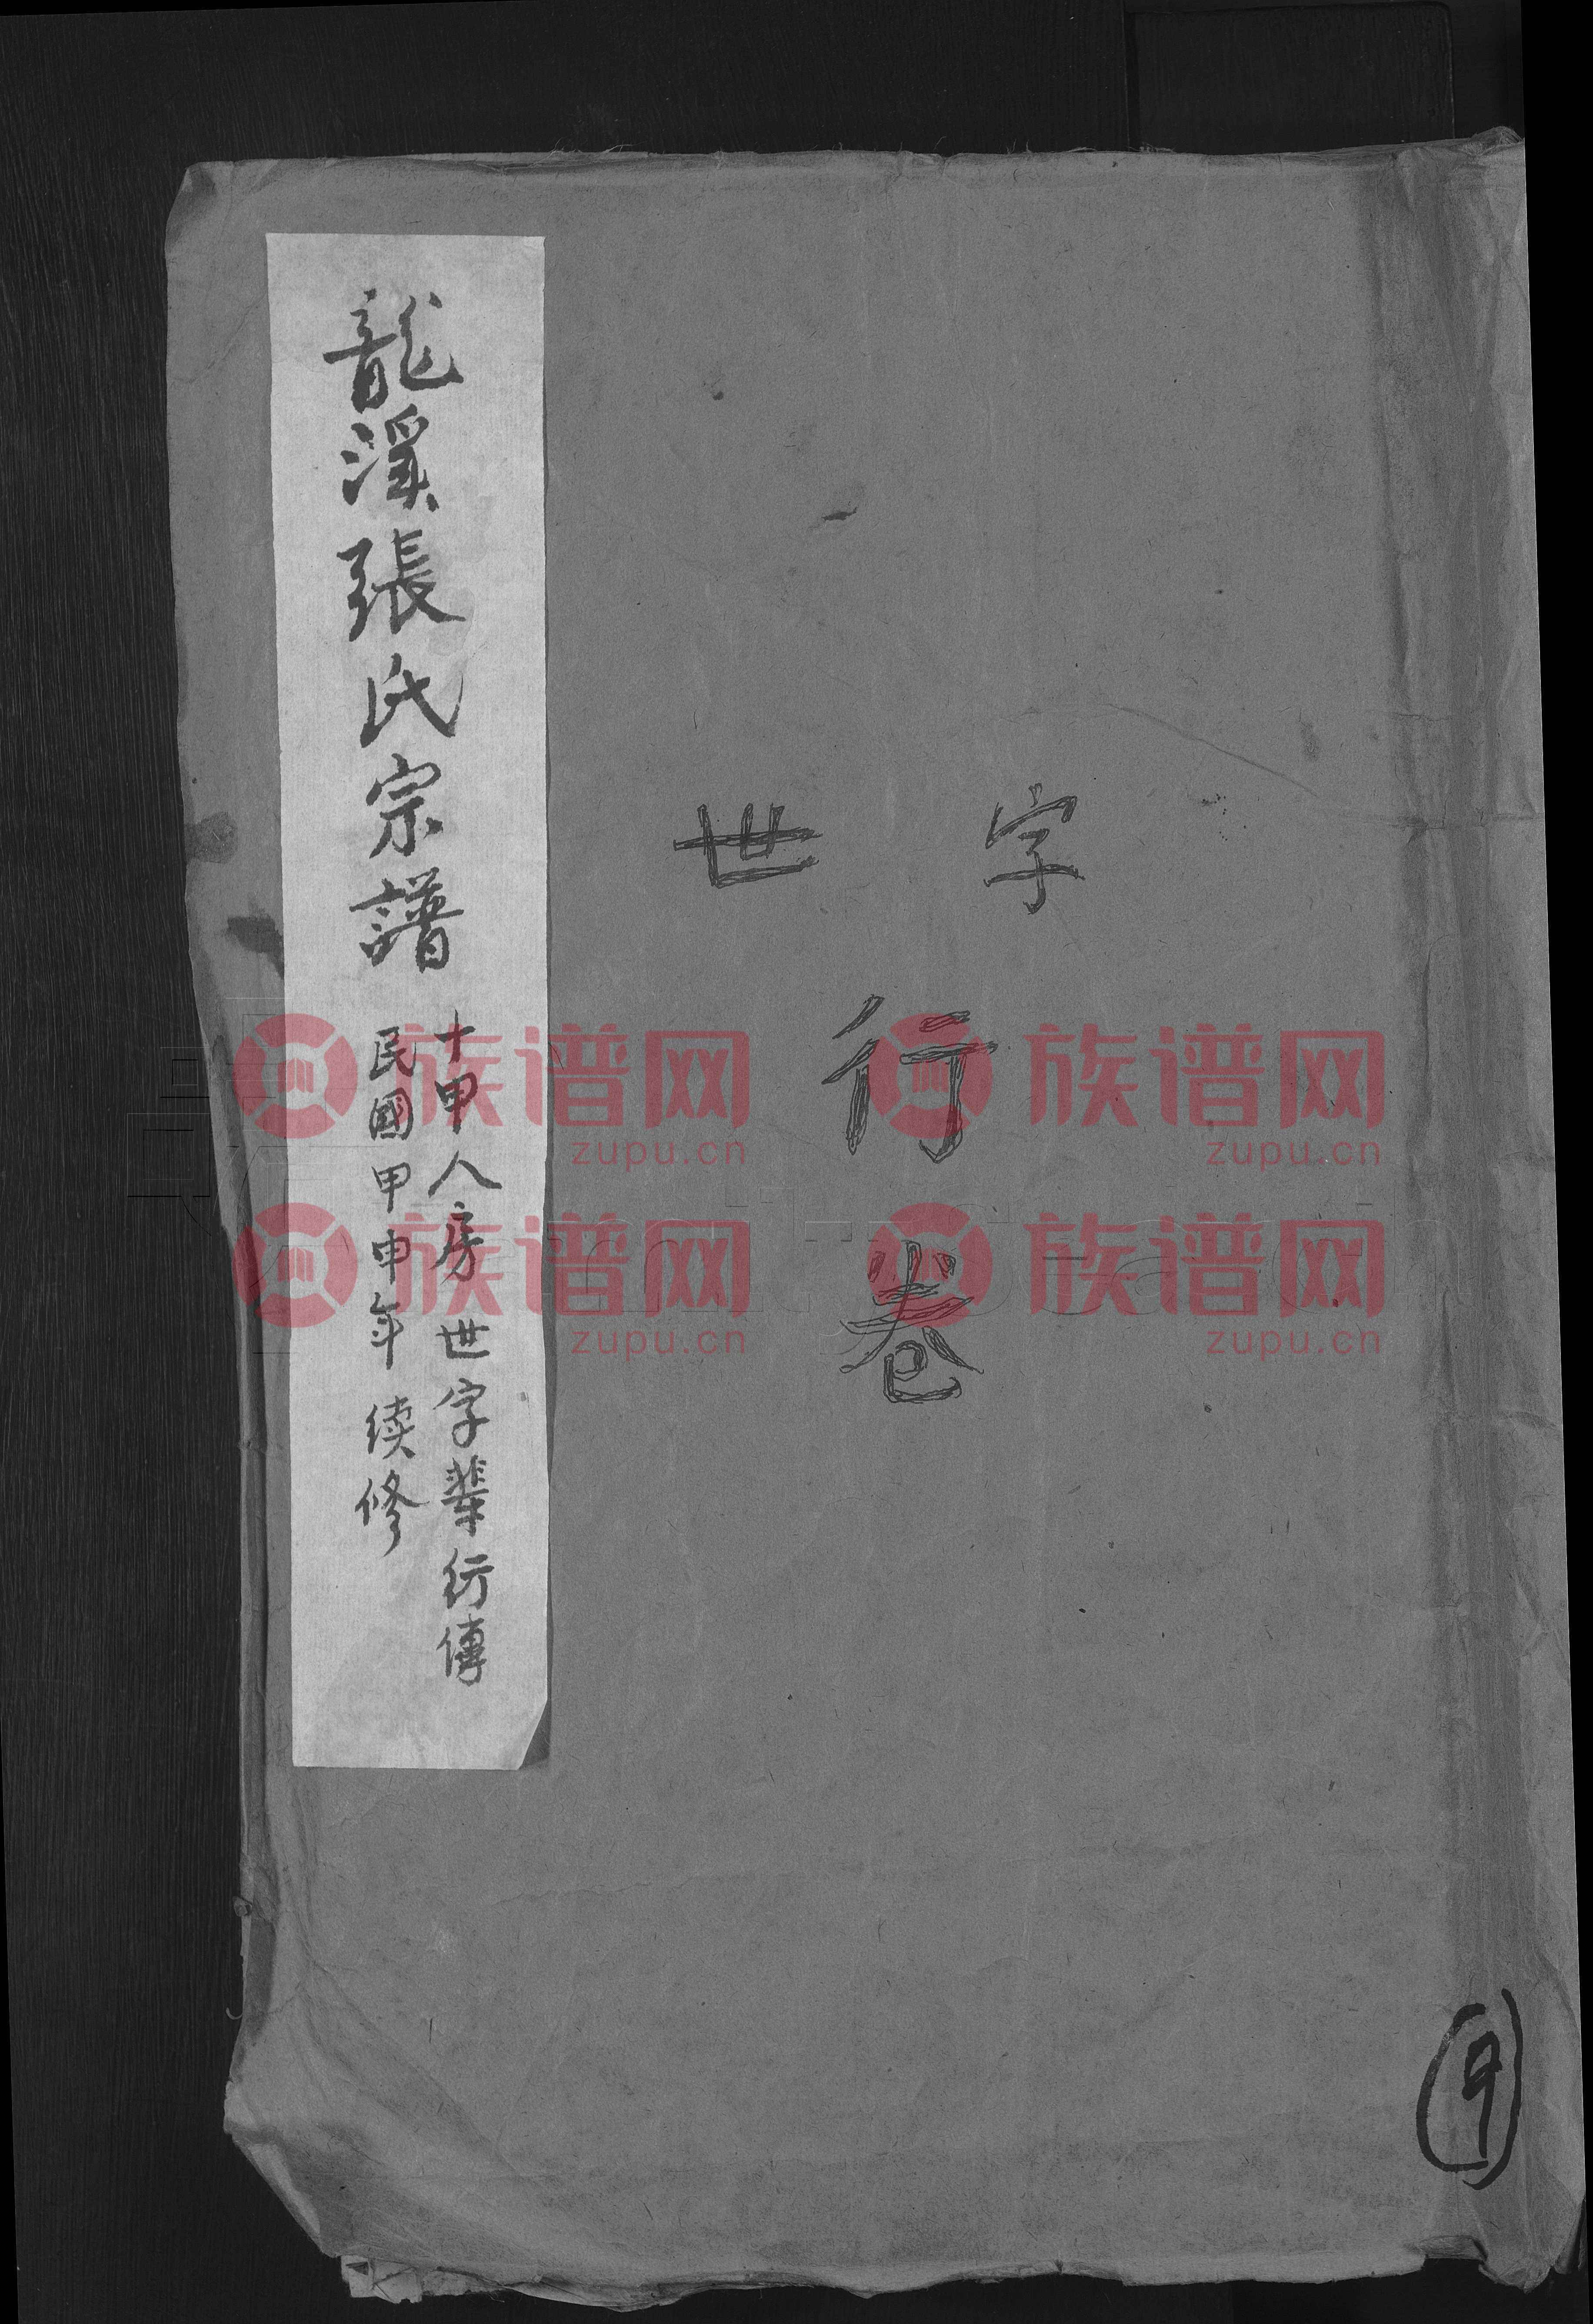 龍溪張氏宗譜
十甲人房世字輩行傳
民國甲申年續修
世字
行
卷
9
族谱网
zupu.cn
族谱网
zupu.cn
族谱网
zupu.cn
族谱网
zupu.cn